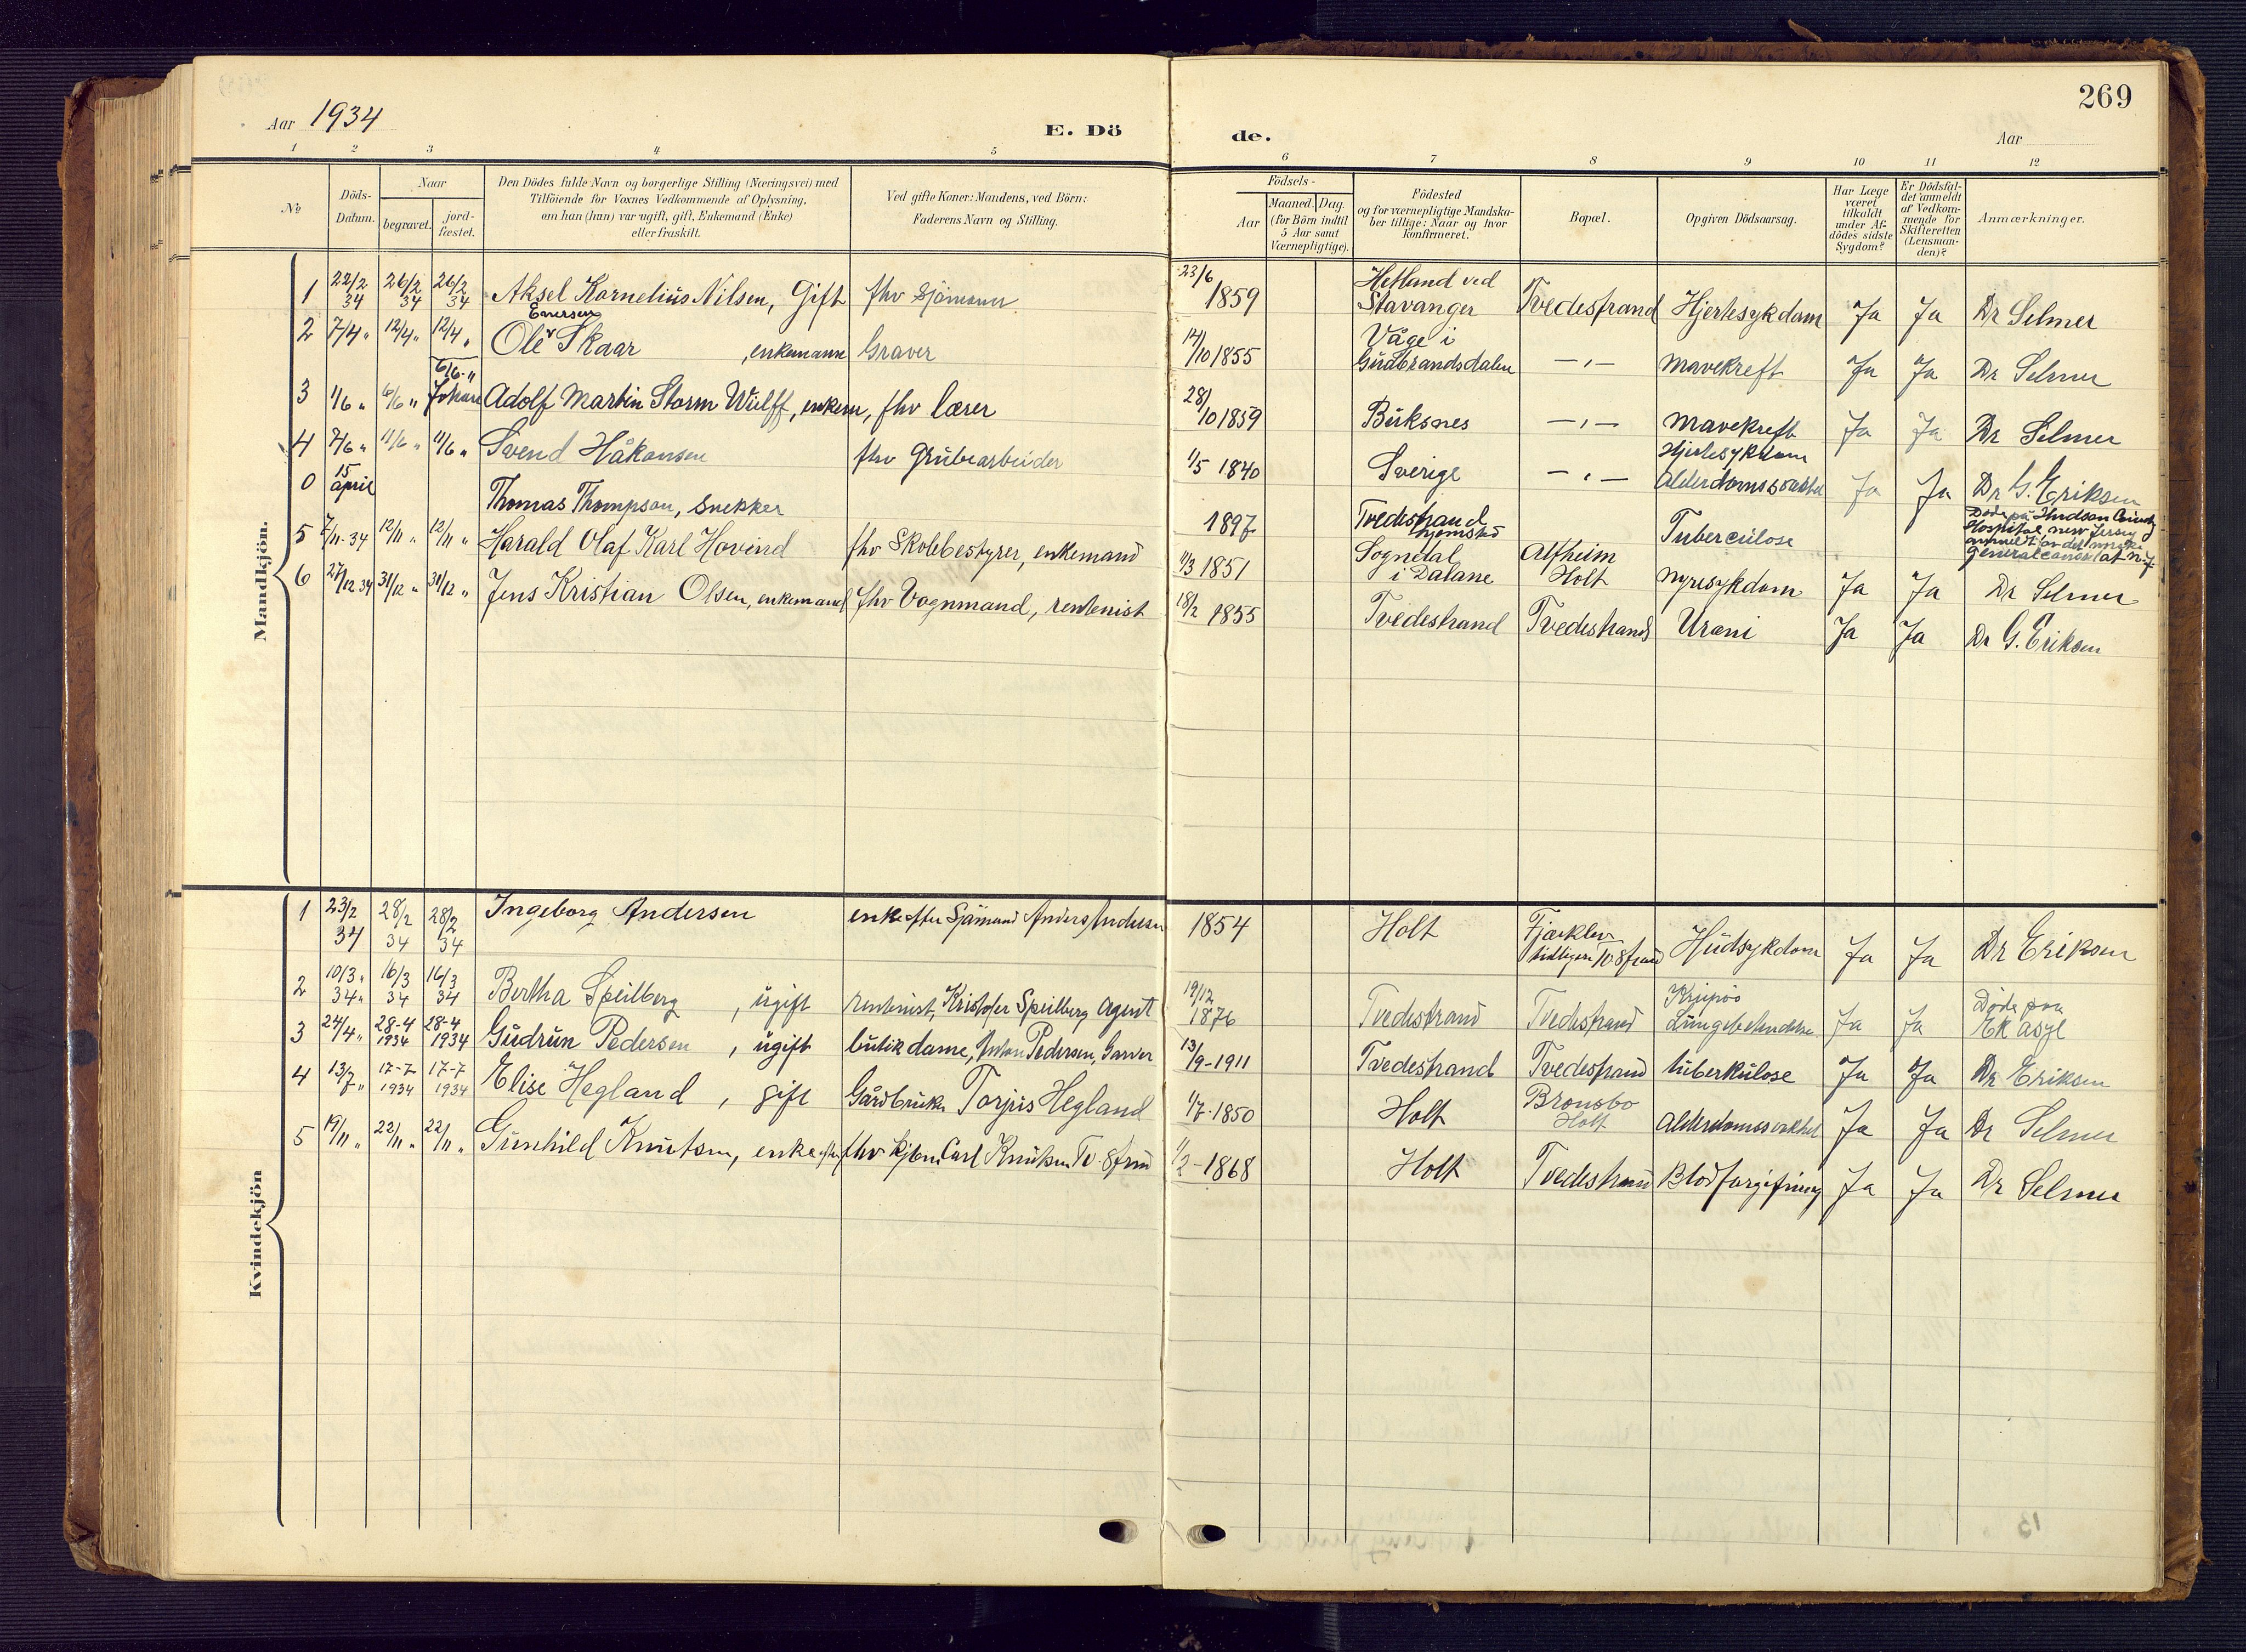 269
Aar 1934
E. Dö
de.
Aar
1 2 3 4 5 6 7 8 9 10 11 12
№
Döds-Datum.
Naar
begravet.
jord-fæstet.
Den Dödes fulde Navn og borgerlige Stilling (Næringsvei) med
Tilföiende for Voxnes Vedkommende af Oplysning,
om han (hun) var ugift, gift, Enkemand (Enke)
eller fraskilt.
Ved gifte Koner: Mandens, ved Börn:
Faderens Navn og Stilling.
Födsels-
Aar
Maaned. Dag.
(for Börn indtil
5 Aar samt
Værnepligtige).
Födested
og for værnepligtige Mandska-
ber tillige: Naar og hvor
konfirmeret.
Bopæl.
Opgiven Dödsaarsag.
Har Læge
været
tilkaldt
under Af-
dödes sidste
Sygdom?
Er Dödsfal-
det anmeldt
af Vedkom-
mende for
Skifteretten
(Lensman-
den)?
Anmærkninger.
Mandkjön.
1 22/2 34 26/2 34 26/2 34 Aksel Kornelius Nilsen, Gift fhv Sjömann 23/6 1859 Hetland ved Stavanger Tvedestrand Hjertesykdom Ja Ja Dr Selmer
2 7/4 " 12/4 " 12/4 " Ole Enersen Skaar, enkemann Graver 14/10 1855 Våge i Gudbrandsdalen — " — Mavekreft Ja Ja Dr Selmer
3 1/6 " 6/6 " 6/6 " Johan Adolf Martin Storm Wulff, enkem, fhv lærer 28/10 1859 Buksnes — " — Mavekreft Ja Ja Dr Selmer
4 7/6 " 11/6 " 11/6 " Svend Håkonsen fhv Grubearbeider 1/5 1840 Sverige — " — Hjertesykdom Alderdomssvakhet Ja Ja Dr G. Eriksen
0 15 april Thomas Thompson, Snekker 1897 Tvedestrand hjemsted Tuberculose Døde på Hudson County Hospital, new Jersey anmeldt av det norske generalconsulat N.Y.
5 7/11-34 12/11 " 12/11 " Harald Olaf Karl Hovind fhv Skolebestyrer, enkemand 11/3 1851 Sogndal i Dalane Alfheim Holt Nyresykdom Ja Ja Dr Selmer
6 27/12 34 31/12 " 31/12 " Jens Kristian Olsen, enkemand fhv Vognmand, rentenist 18/2 1855 Tvedestrand Tvedestrand Urani Ja Ja Dr G. Eriksen
Kvindekjön
1 23/2 34 28/2 34 28/2 34 Ingeborg Andersen enke efter Sjömand Anders Andersen 1854 Holt Fjærkleiv tidligere Hudsykdom Ja Ja Dr Eriksen
2 10/3 34 16/3 34 16/3 34 Bertha Speilberg, ugift rentenist, Kristofer Speilberg Agent 19/12 1876 Tvedestrand Tvedestrand Lungebetendelse Ja Ja Døde paa EK asyl
3 24/4 " 28-4 1934 28-4 1934 Gudrun Pedersen, ugift butikdame, Anton Pedersen, Garver 13/9-1911 Tvedestrand Tvedestrand tuberkulose Ja Ja Dr Eriksen
4 13/7 " 17-7 1934 17-7 1934 Elise Hegland, gift Gårdbruker Torjus Hegland 1/7-1850 Holt Bronsbo Holt Alderdomssvakhet Ja Ja Dr Selmer
5 19/11 " 22/11 " 22/11 " Gunhild Knutsen, enke efter fhv Kjöbm Carl Knutsen 1/2-1868 Holt Tvedestrand Blodforgiftning Ja Ja Dr Selmer